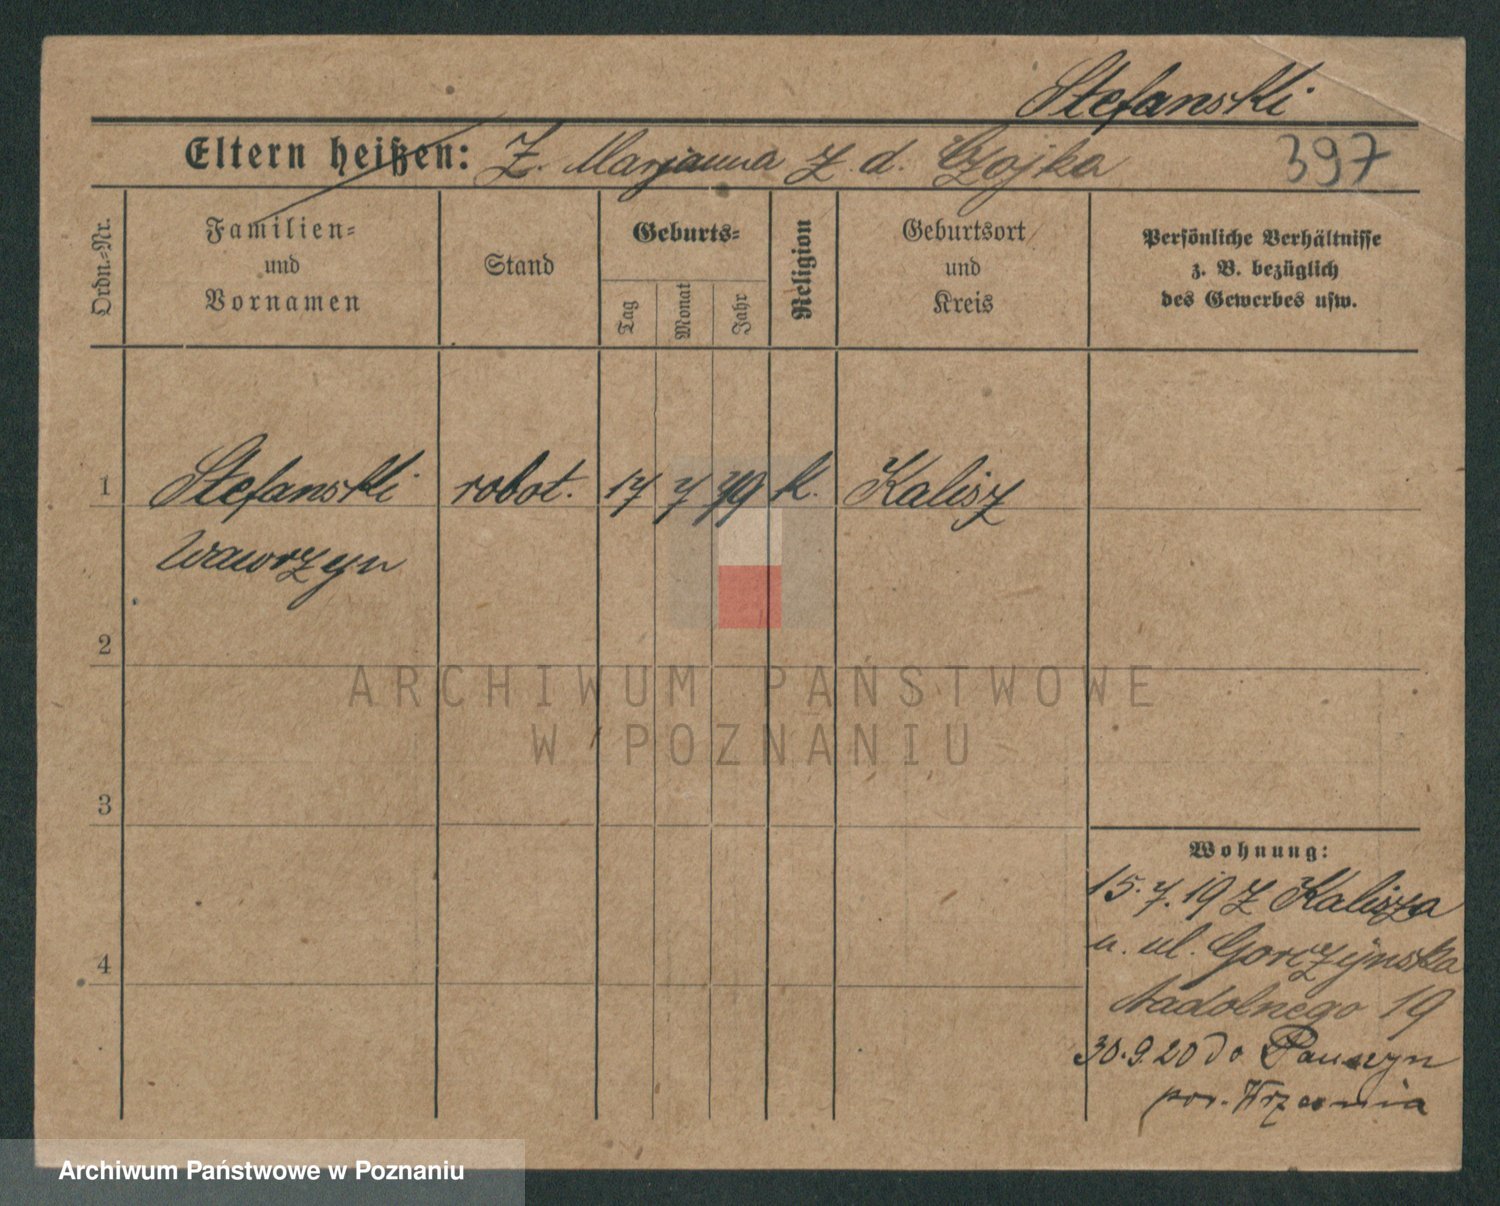 Stefanski
Eltern heißen: Z. Marjanna z d. Czojka 397
Ordn.-Nr.
Familien-
und
Vornamen
Stand
Geburts-
Tag
Monat
Jahr
Religion
Geburtsort
und
Kreis
Persönliche Verhältnisse
z. B. bezüglich
des Gewerbes usw.
1 Stefanski robot. 17 7 79 k. Kalisz
Wawrzyn
2
ARCHIWUM PAŃSTWOWE
W POZNANIU
3
Wohnung:
15.7.19 z Kalisza
u. ul. Gorczynska
Nadolnego 19
4
30.9.20 do
pow. Września
Archiwum Państwowe w Poznaniu